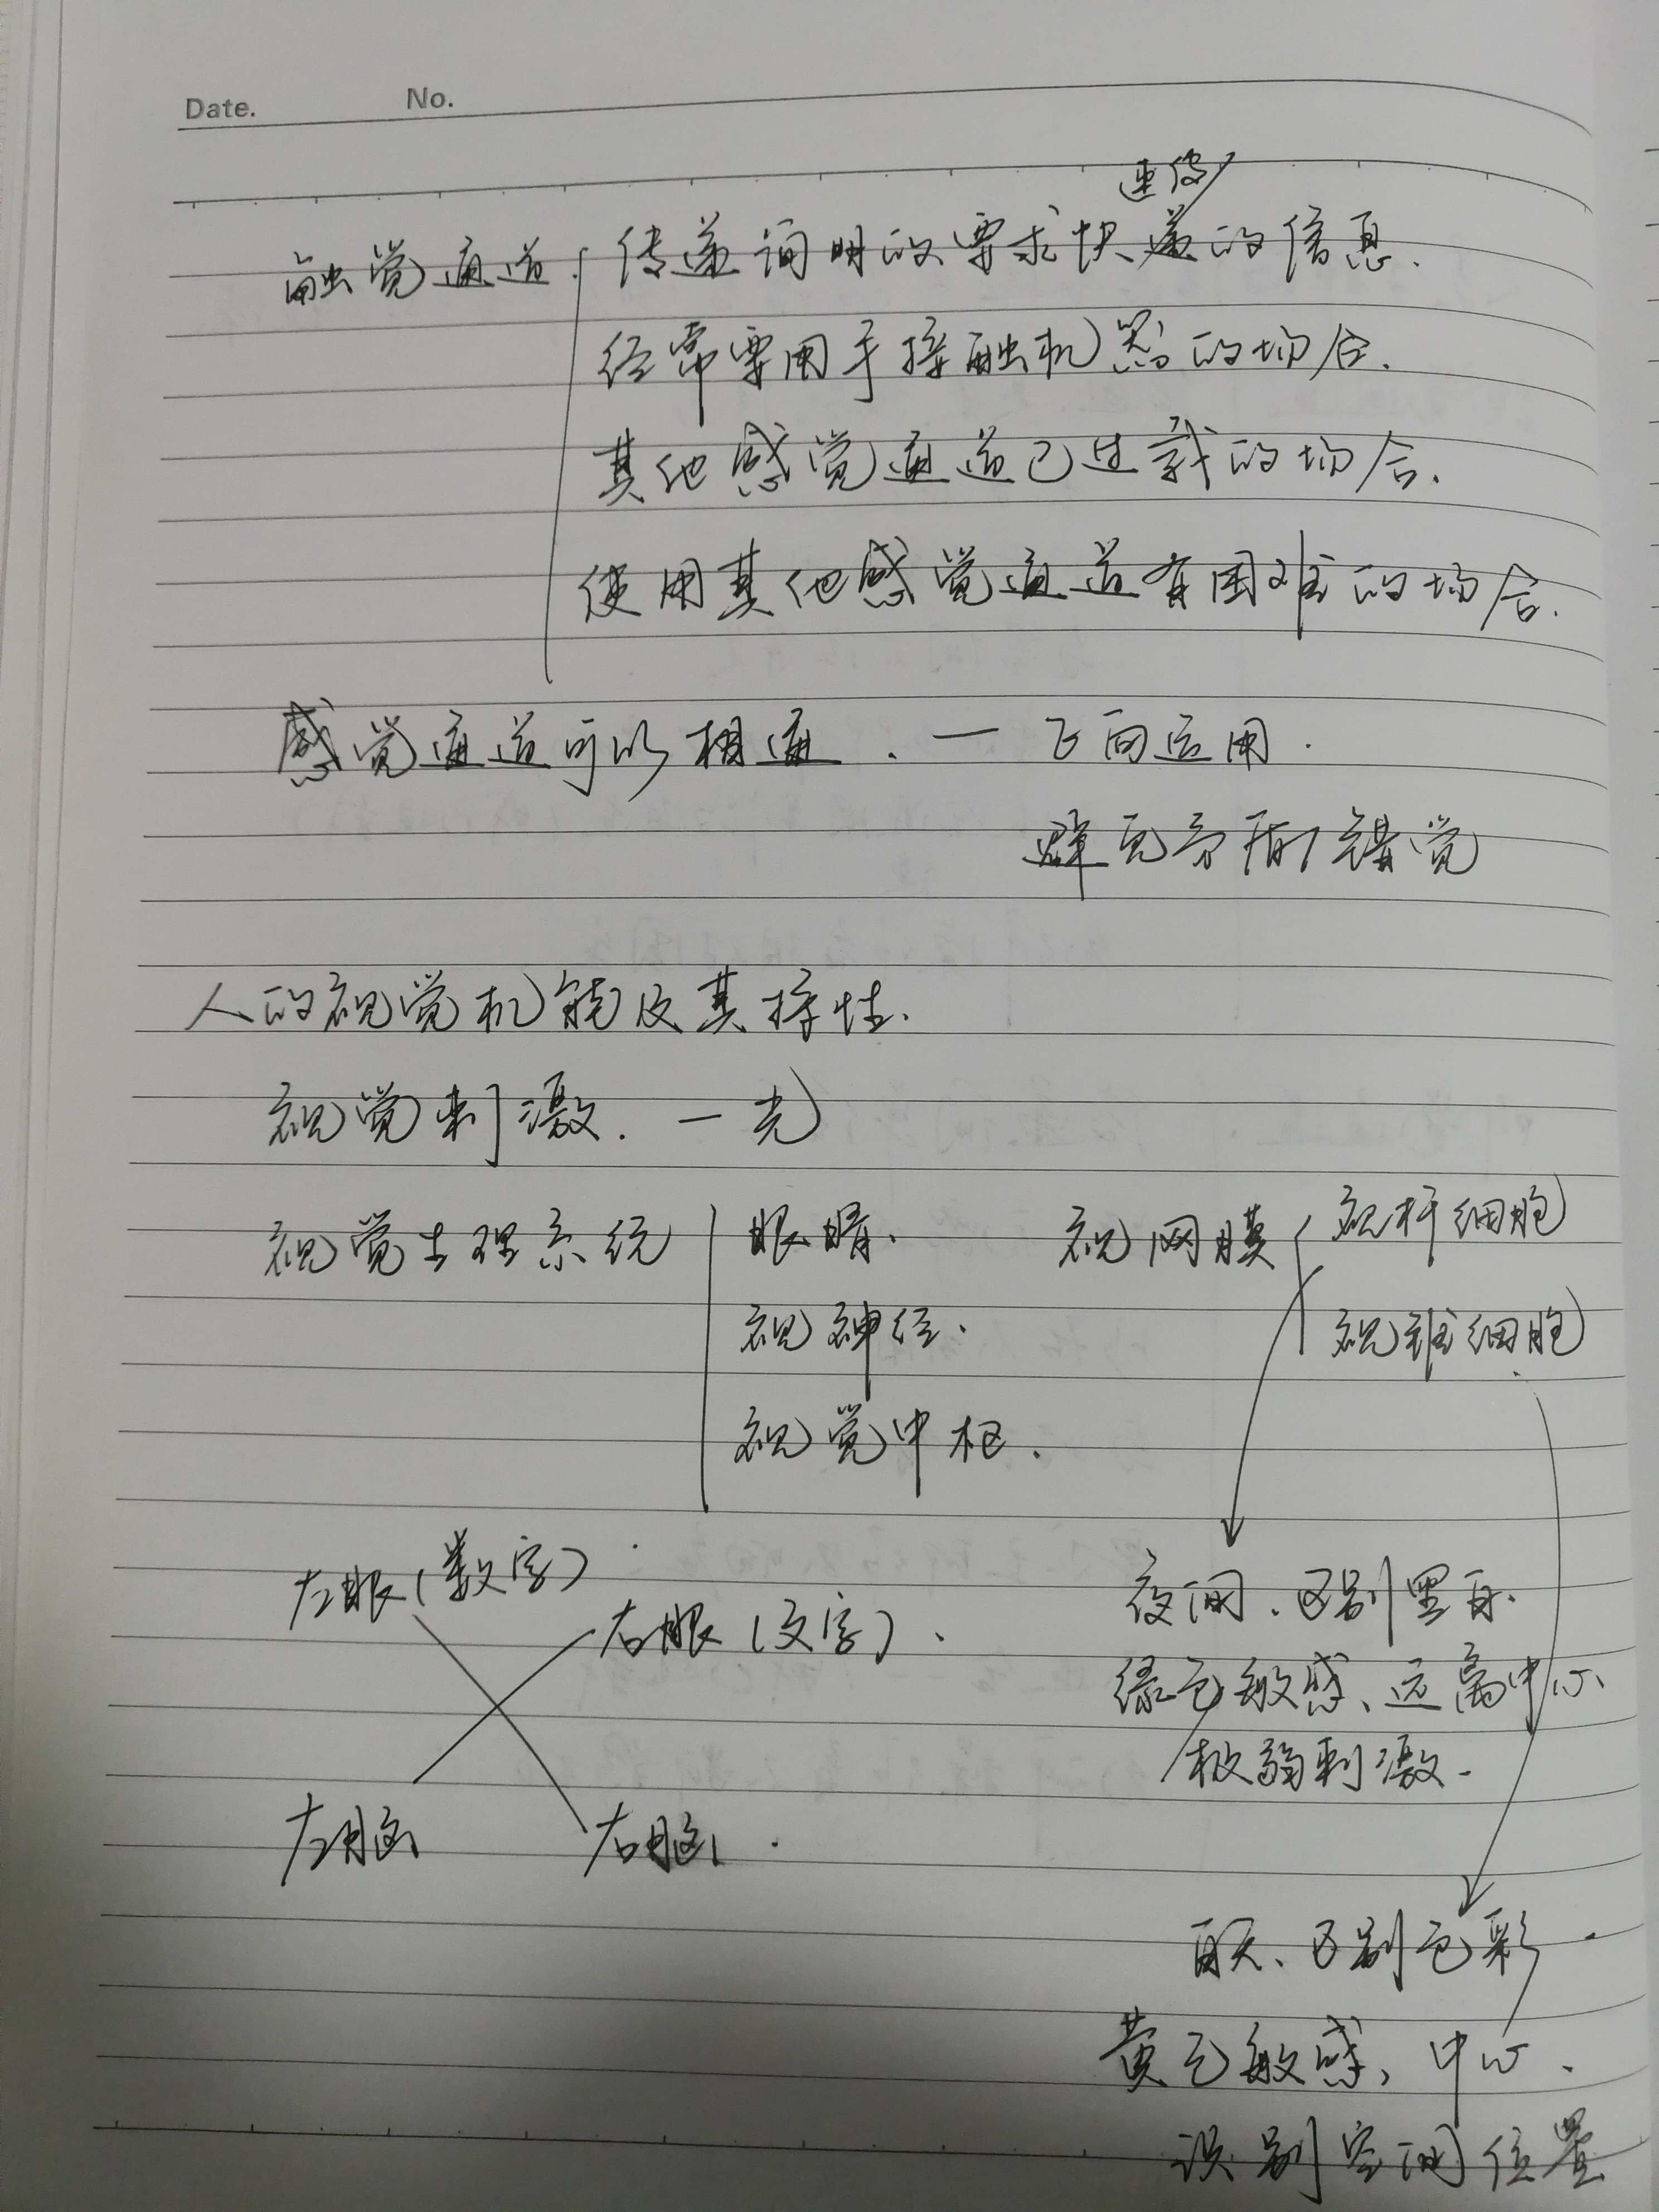 Date. No.
速传
触觉通道 传递简明的要求快递的信息.
经常要用手接触机器的场合.
其他感觉通道已过载的场合.
使用其他感觉通道有困难的场合.
感觉通道可以相通. — 正向运用.
避免矛盾错觉
人的视觉机能及其特性.
视觉刺激. — 光
视觉生理系统 眼睛. 视网膜 视杆细胞
视神经. 视锥细胞
视觉中枢.
左眼(数字)
右眼(文字).
左脑 右脑.
夜间、区别黑白.
绿色敏感、远离中心、
极弱刺激.
白天、区别色彩.
黄色敏感、中心.
识别空间位置